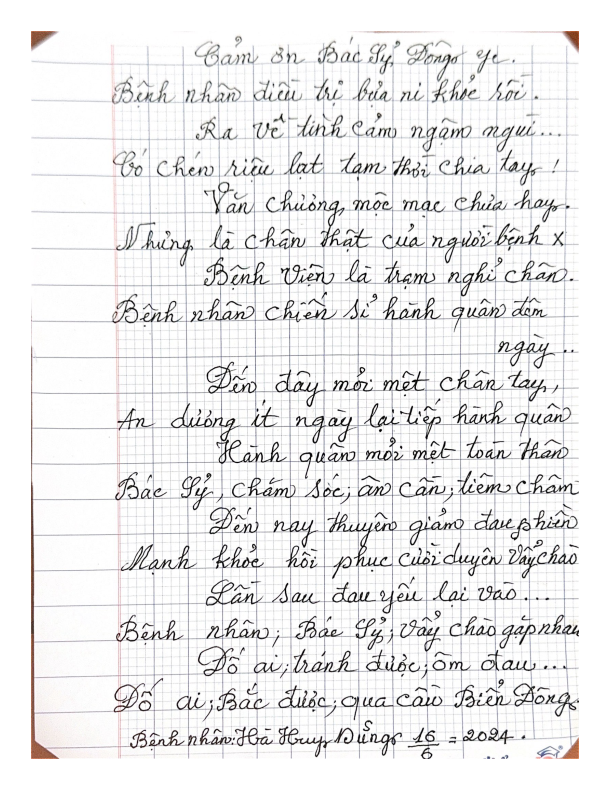 Cảm ơn Bác Sỹ, Đông y.
Bệnh nhân điều trị bựa ni khỏe rồi.
Ra về tình cảm ngậm ngùi...
Có chén riệu lạt tạm thời chia tay!
Văn chương, mộc mạc chưa hay.
Nhưng là chân thật của người bệnh x
Bệnh viện là trạm nghỉ chân.
Bệnh nhân chiến sĩ hành quân đêm
ngày..
Đến đây mỏi mệt chân tay,
An dưỡng ít ngày lại tiếp hành quân
Hành quân mỏi mệt toàn thân
Bác Sỹ, chăm sóc; ân cần; tiêm châm
Đến nay thuyên giảm đau phiền
Mạnh khỏe hồi phục cười duyên vẫy chào
Lần sau đau yếu lại vào...
Bệnh nhân; Bác Sỹ; vẫy chào gặp nhau
Đố ai; tránh được; ốm đau...
Đố ai; Bắc được; qua cầu Biển Đông.
Bệnh nhân: Hà Huy Dũng 16/6 = 2024.